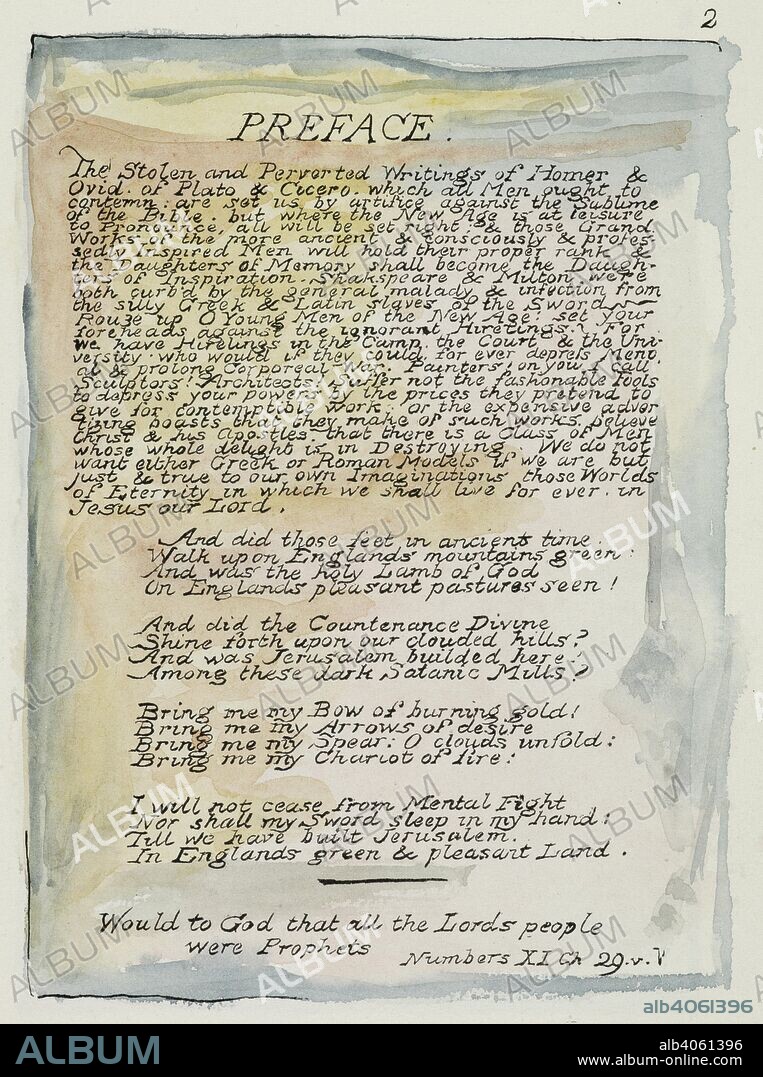 2
PREFACE.
The Stolen and Perverted Writings of Homer &
Ovid. of Plato & Cicero. which all Men ought to
contemn: are set us by artifice against the Sublime
of the Bible. but where the New Age is at leisure
to Pronounce, all will be set right: & those Grand
Works of the more ancient & consciously & profes-
sedly Inspired Men will hold their proper rank &
the Daughters of Memory shall become the Daugh-
ters of Inspiration. Shakspeare & Milton were
both curb'd by the general malady & infection from
the silly Greek & Latin slaves of the Sword
Rouze up O Young Men of the New Age! set your
foreheads against the ignorant Hirelings! For
we have Hirelings in the Camp, the Court & the Uni-
versity. who would if they could, for ever depress Ment-
al & prolong Corporeal War. Painters! on you I call
Sculptors! Architects! Suffer not the fashonable Fools
to depress your powers by the prices they pretend to
give for contemptible work, or the expensive adver
tizing boasts that they make of such works. believe
Christ & his Apostles. that there is a Class of Men
whose whole delight is in Destroying. We do not
want either Greek or Roman Models if we are but
just & true to our own Imaginations those Worlds
of Eternity in which we shall live for ever. in
Jesus our Lord.
And did those feet in ancient time.
Walk upon Englands mountains green:
And was the holy Lamb of God
On Englands pleasant pastures seen!
And did the Countenance Divine
Shine forth upon our clouded hills?
And was Jerusalem builded here,
Among these dark Satanic Mills?
Bring me my Bow of burning gold!
Bring me my Arrows of desire
Bring me my Spear: O clouds unfold:
Bring me my Chariot of fire!
I will not cease from Mental Fight
Nor shall my Sword sleep in my hand:
Till we have built Jerusalem.
In Englands green & pleasant Land.
Would to God that all the Lords people
were Prophets
Numbers XI Ch 29.v.V
ALBUM
alb4061396
alb4061396
www.album-online.com